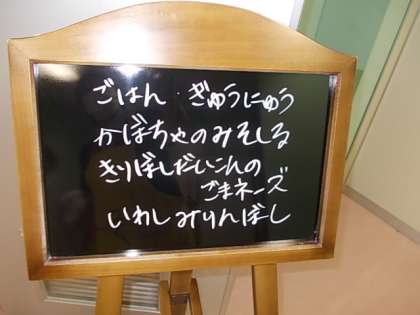 ごはん・ぎゅうにゅう
かぼちゃのみそしる
きりぼしだいこんの
ごまネーズ
いわしみりんぼし